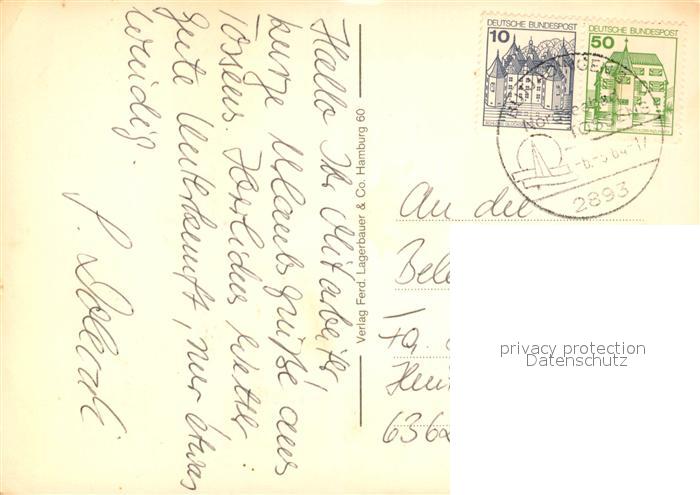 Hallo Ihr Mitarbeiter,
kurze Urlaubsgrüße aus
Tossens. Herrliches Wetter
gute Unterkunft, nur etwas
windig.
Verlag Ferd. Lagerbauer & Co. Hamburg 60
DEUTSCHE BUNDESPOST
10
DEUTSCHE BUNDESPOST
50
2893
An die
Bele
Fa.
6362
privacy protection
Datenschutz